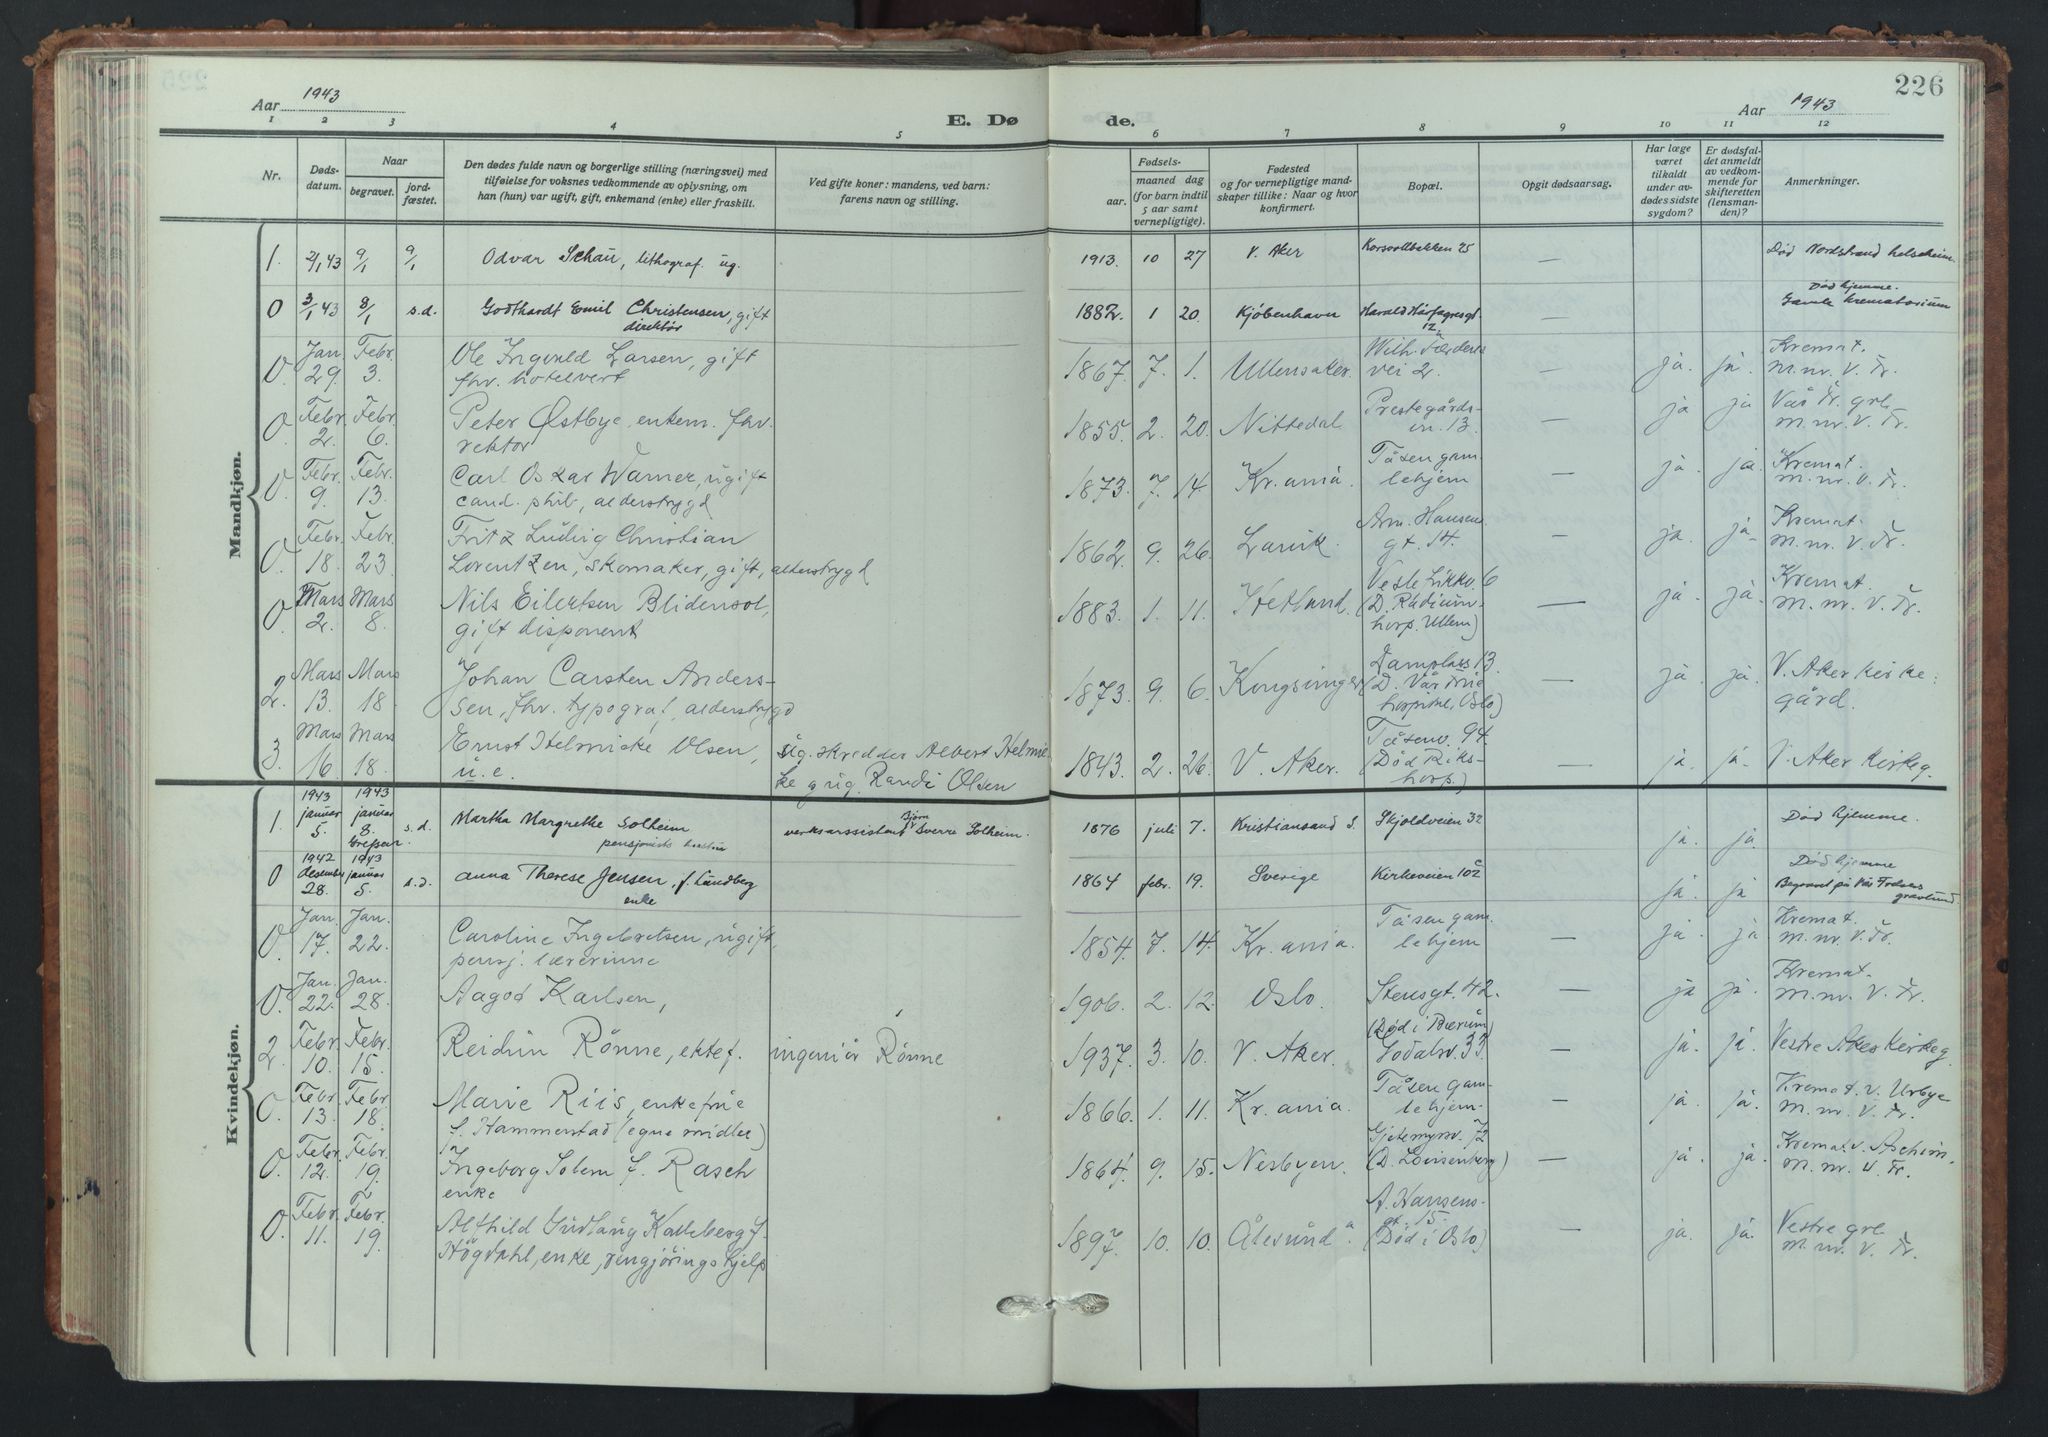 226
Aar 1943
Aar 1943
E. Dø
de.
1 2 3 4 5
6 7 8 9 10 11 12
Nr.
Døds-
datum.
Naar
begravet.
jord-
fæstet.
Den dødes fulde navn og borgerlige stilling (næringsvei) med
tilføielse for voksnes vedkommende av oplysning, om
han (hun) var ugift, gift, enkemand (enke) eller fraskilt.
Ved gifte koner: mandens, ved barn:
farens navn og stilling.
Fødsels-
aar.
maaned dag
(for barn indtil
5 aar samt
vernepligtige).
Fødested
og for vernepligtige mand-
skaper tillike: Naar og hvor
konfirmert.
Bopæl.
Opgit dødsaarsag.
Har læge
været
tilkaldt
under av-
dødes sidste
sygdom?
Er dødsfal-
det anmeldt
av vedkom-
mende for
skifteretten
(lensman-
den)?
Anmerkninger.
Mandkjøn.
1. 2/1 43 9/1 9/1 Odvar Schau, lithograf. ug. 1913. 10 27 V. Aker Korsvollbakken 25 — Død Nordstrand helseheim.
0 3/1 43 8/1 s.d. Godthardt Emil Christensen, gift 1882. 1 20. Kjøbenhavn Harald Hårfagresgt. — Død hjemme.
direktør 12 Gamle krematorium
0. Jan. 29. Febr. 3. Ole Ingvald Larsen, gift 1867. 7. 1. Ullensaker. Wilh. Færdens — ja. ja. Kremat.
fhv. hotelvert vei 2. M. nr. V. Fr.
0. Febr. 2. Febr. 6. Peter Østbye, enkem. fhv. 1855. 2. 20. Nittedal Prestegårds- — ja ja Vår Fr. grl.
rektor v. 13. M. nr. V. Fr.
0. Febr. 9. Febr. 13. Carl Oskar Warner, ugift 1873. 7. 14. Kr.ania. Tåsen gam- — ja. ja. Kremat.
cand. phil., alderstrygd lehjem M. nr. V. Fr.
0. Febr. 18. Febr. 23. Fritz Ludvig Christian 1862. 9. 26. Larvik. Arn. Hansens — ja. ja. Kremat.
Lorentzen, skomaker, gift, alderstrygd gt. 14. M. nr. V. Fr.
0. Mars 2. Mars 8. Nils Eilertsen Blidensol, 1883. 1. 11. Hetland. Vesle Likkv. 6 — ja. ja. Kremat.
gift disponent (D. Radium- M. nr. V. Fr.
hosp. Ullern)
2. Mars 13. Mars 18. Johan Carsten Anders- 1873. 9. 6. Kongsvinger Damplass 13. — ja. ja. V. Aker kirke-
sen, fhv. typograf, alderstrygd (D. Vår Frue gård.
hospital, Oslo)
3. Mars 16. Mars 18. Ernst Helmicke Olsen, ug. skredder Albert Helmic- 1843. 2. 26. V. Aker. Tåsenv. 94. — ja. ja. V. Aker kirkeg.
u. e. ke g ug. Randi Olsen (Død Riks-
hosp.)
Kvindekjøn.
1. 1943 januar 5. 1943 januar 8. Grefsen s.d. Martha Margrethe Solheim verksarssistent Bjørn Sverre Solheim. 1876 juli 7. Kristiansand S. Skjoldveien 32 ja. ja. Død hjemme.
pensjonists hustru
0 1942 desember 28. 1943 januar 5. s.d. Anna Therese Jensen, f. Lundberg 1864 febr. 19. Sverige Kirkeveien 102 ja. ja Død hjemme
enke Begravet på Vår Frelsers
gravlund.
0. Jan. 17. Jan. 22. Caroline Ingebretsen, ugift, 1854. 7. 14. Kr.ania. Tåsen gam- — ja. ja Kremat.
pensj. lærerinne lehjem M. nr. V. Fr.
0. Jan. 22. Jan. 28. Aagot Karlsen, 1906. 2. 12. Oslo. Stensgt. 42. — ja ja. Kremat.
M. nr. V. Fr.
2. Febr. 10. Febr. 15. Reidun Rønne, ektef. ingeniør Rønne 1937. 3. 10. V. Aker. (Død i Bærum) — ja. ja. Vestre Aker kirkeg.
Godalsv. 33.
0. Febr. 13. Febr. 18. Marie Riis, enkefrue 1866. 1. 11. Kr.ania. Tåsen gam- — ja. ja. Kremat. v. Urbye
f. Hammerstad (egne midler) lehjem. M. nr. V. Fr.
0. Febr. 12. Febr. 19. Ingeborg Solem f. Rasch 1864. 9. 15. Nesbyen. Gjetemyrsv. 72 — ja. ja. Kremat. v. Aschim.
enke (D. Lovisenberg) M. nr. V. Fr.
0. Febr. 11. Febr. 19. Alfhild Gudlaug Kalleberg f. 1897. 10. 10. Ålesund. A. Hansens- — ja. ja. Vestre grl.
Högdahl, enke, rengjøringshjelp gt. 15. M. nr. V. Fr.
(Død i Oslo)